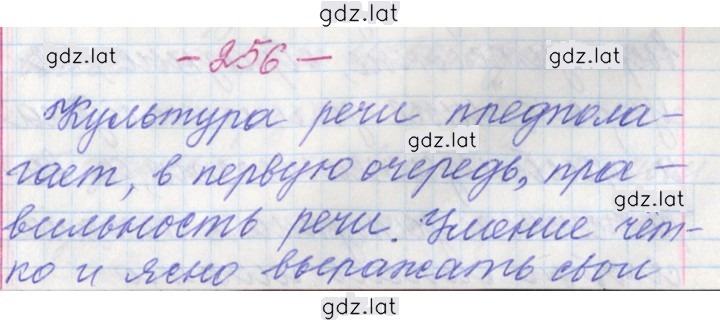 gdz.lat
gdz.lat - 256 - gdz.lat
Культура речи предпола-
gdz.lat
гает, в первую очередь, пра-
gdz.lat
вильность речи. Умение чёт-
ко и ясно выражать свои
gdz.lat